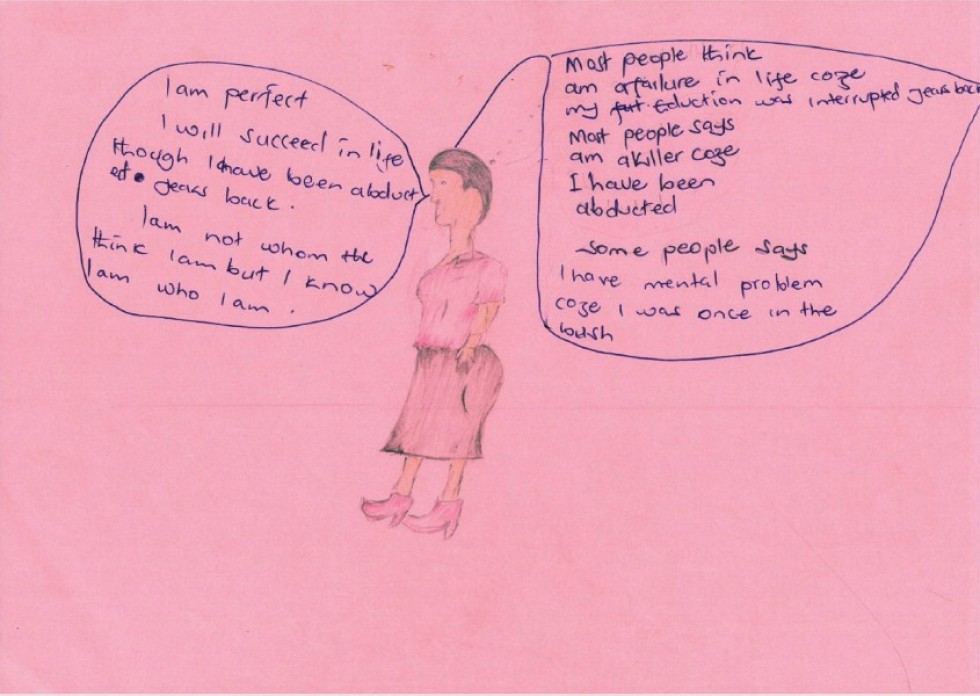 I am perfect
I will succeed in life
though I have been abduct
ed years back.
I am not whom the
think I am but I know
I am who I am.
Most people think
am a failure in life coze
my eduction was interrupted years back
Most people says
am a killer coze
I have been
abducted
some people says
I have mental problem
coze I was once in the
bush